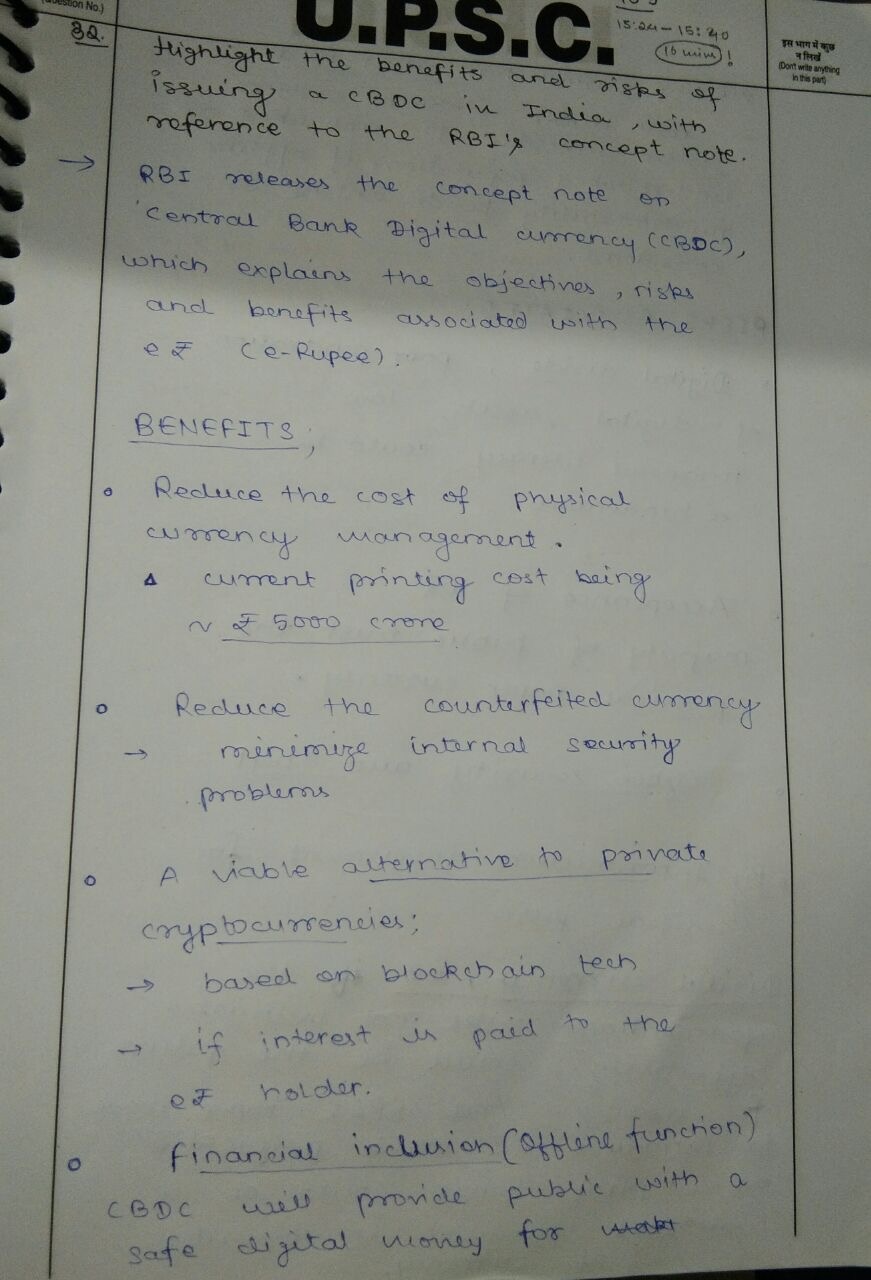 (Question No.)
U.P.S.C.
15:24 - 15:40
(16 mins)!
इस भाग में कुछ
न लिखें
(Don't write anything
in this part)
32.
Highlight the benefits and risks of
issuing a CBDC in India, with
reference to the RBI's concept note.
→ RBI releases the concept note on
'Central Bank Digital currency (CBDC),
which explains the objectives, risks
and benefits associated with the
e₹ (e-Rupee).
BENEFITS;
∘ Reduce the cost of physical
currency management.
∆ current printing cost being
~ ₹ 5000 crore
∘ Reduce the counterfeited currency
→ minimize internal security
problems
∘ A viable alternative to private
cryptocurrencies;
→ based on blockchain tech
→ if interest is paid to the
e₹ holder.
∘ financial inclusion (offline function)
CBDC will provide public with a
safe digital money for